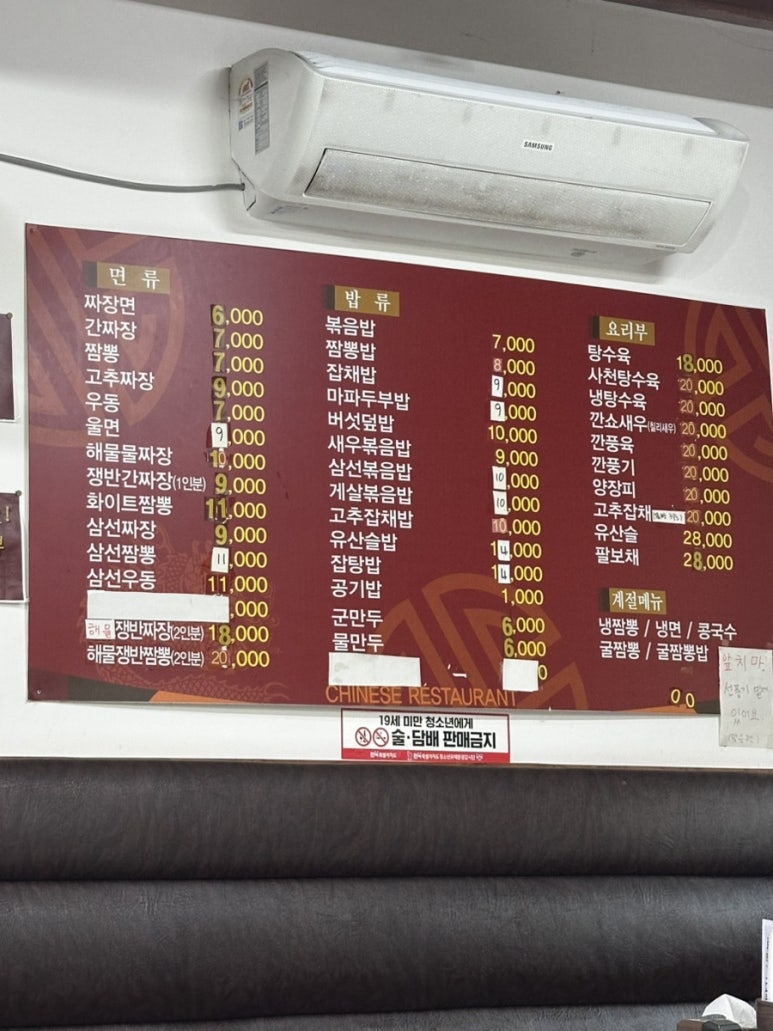 SAMSUNG
면 류
짜장면 6,000
간짜장 7,000
짬뽕 7,000
고추짜장 9,000
우동 7,000
울면 9,000
해물물짜장 10,000
쟁반간짜장(1인분) 9,000
화이트짬뽕 11,000
삼선짜장 9,000
삼선짬뽕 11,000
삼선우동 11,000
,000
해물쟁반짜장(2인분) 18,000
해물쟁반짬뽕(2인분) 20,000
밥 류
볶음밥 7,000
짬뽕밥 8,000
잡채밥 9,000
마파두부밥 9,000
버섯덮밥 10,000
새우볶음밥 9,000
삼선볶음밥 10,000
게살볶음밥 10,000
고추잡채밥 10,000
유산슬밥 14,000
잡탕밥 14,000
공기밥 1,000
군만두 6,000
물만두 6,000
0
요리부
탕수육 18,000
사천탕수육 20,000
냉탕수육 20,000
깐쇼새우(칠리새우) 20,000
깐풍육 20,000
깐풍기 20,000
양장피 20,000
고추잡채 20,000
유산슬 28,000
팔보채 28,000
계절메뉴
냉짬뽕 / 냉면 / 콩국수
굴짬뽕 / 굴짬뽕밥
00
CHINESE RESTAURANT
19세 미만 청소년에게
술·담배 판매금지
있어요